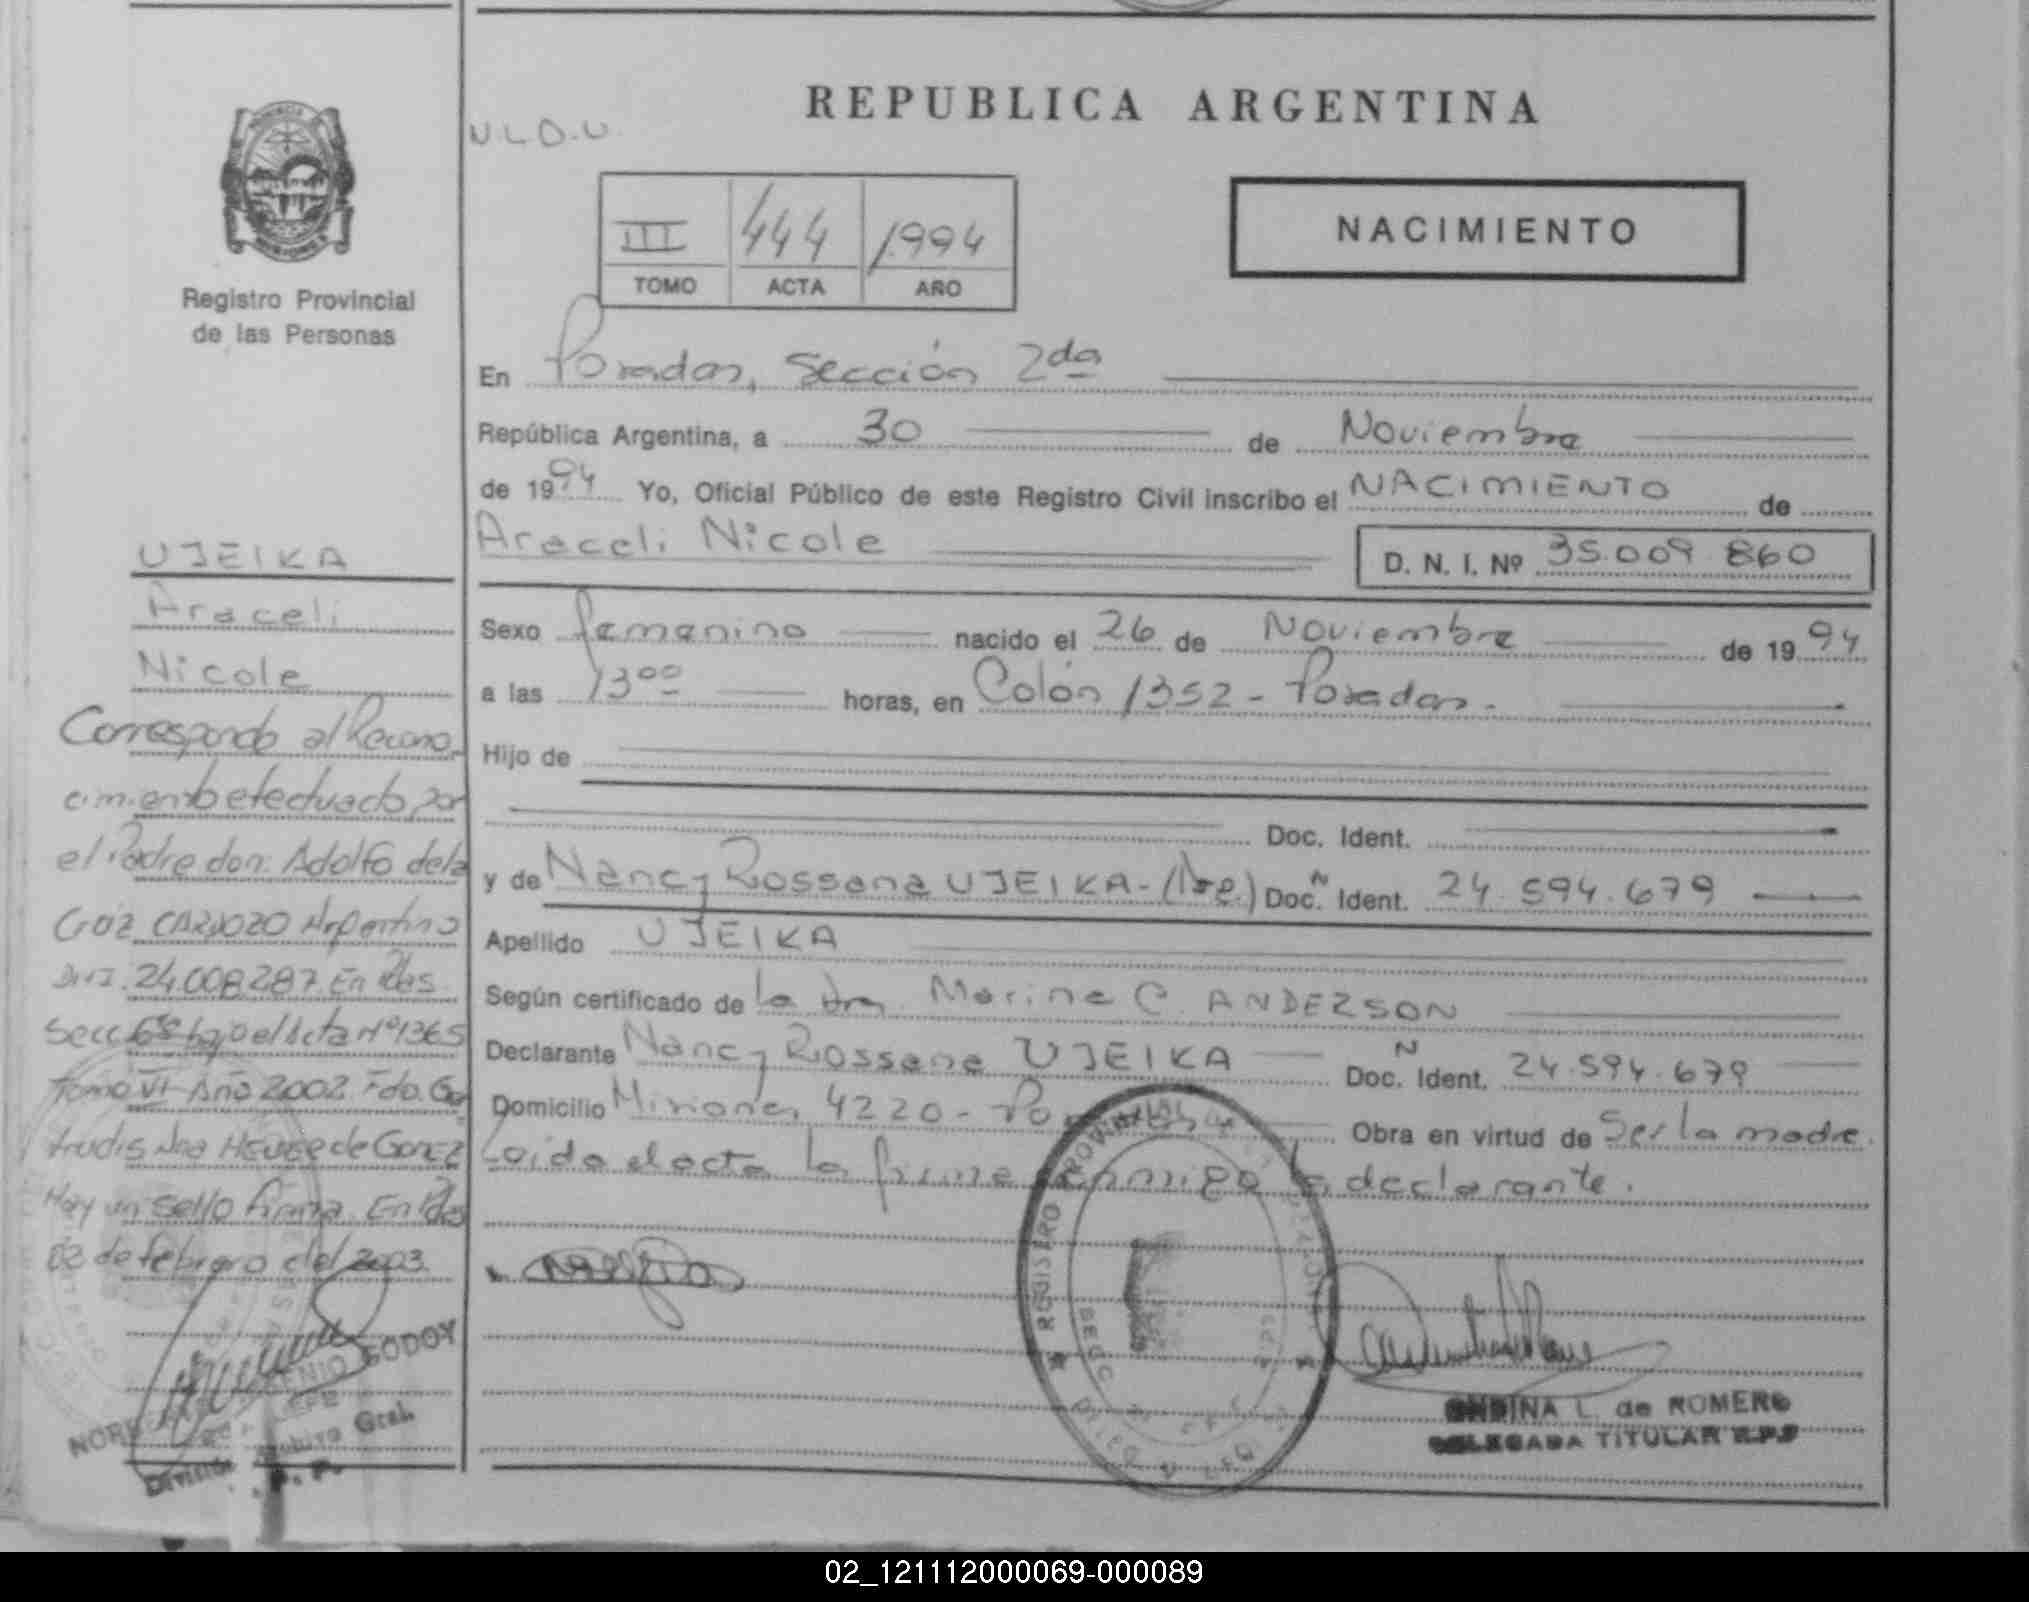 REPUBLICA ARGENTINA
NACIMIENTO
III 444 1.994
TOMO ACTA AÑO
Registro Provincial
de las Personas
En Posadas, Sección 2da
República Argentina, a 30 de Noviembre
de 1994 Yo, Oficial Público de este Registro Civil inscribo el NACIMIENTO de
Araceli Nicole D. N. I. Nº 35.009.860
Sexo femenino nacido el 26 de Noviembre de 1994
a las 13 00 horas, en Colón 1352 - Posadas.
Hijo de
Doc. Ident.
y de Nancy Rossana UJEIKA - Doc. Ident. 24.594.679
Apellido UJEIKA
Según certificado de la Dra. Marina C. ANDERSON
Declarante Nancy Rossana UJEIKA Doc. Ident. 24.594.679
Domicilio Misiones 4220 - Obra en virtud de Ser la madre.
Leida el acta la firma conmigo la declarante.
UJEIKA
Araceli
Nicole
Corresponde al Recono-
cimiento efectuado por
el Padre don: Adolfo de la
Cruz CARDOZO Argentino
DNI. 24.008.287. En Pdas
Secc 6ta bajo el Acta Nº 1365
Tomo VI Año 2002. Fdo. Ger
trudis de
Hay un sello firma. En Pdas
de febrero del 2003.
GODOY
JEFE
División Archivo Gral.
REGISTRO PROVINCIAL DE LAS PERSONAS
ONDINA L. de ROMERO
DELEGADA TITULAR R.P.P
02_121112000069-000089